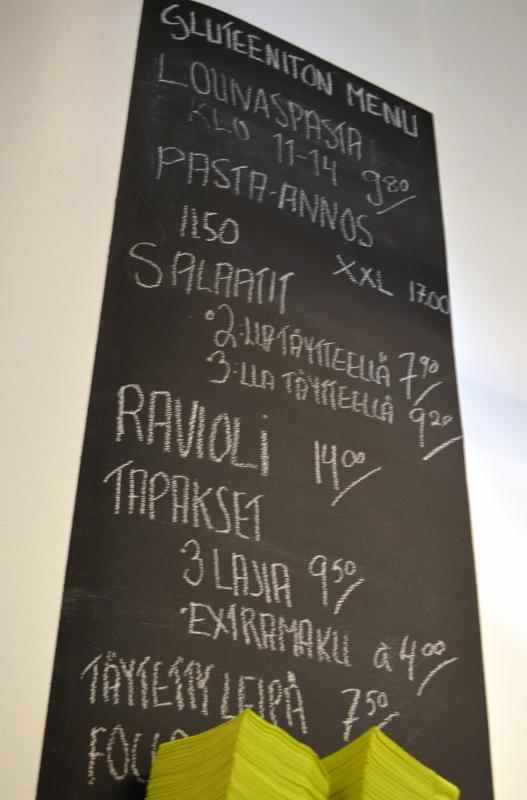 GLUTEENITON MENU
LOUNASPASTA
KLO 11-14 980
PASTA-ANNOS
1150
XXL 17.00
SALAATIT
2:LLA TÄYTTEELLÄ 7,90
3:LLA TÄYTTEELLÄ 9,20
RAVIOLI 14,00
TAPAKSET
3 LAJIA 9,50
EXTRAMAKU à 4,00
TÄYTETTY LEIPÄ 7,50